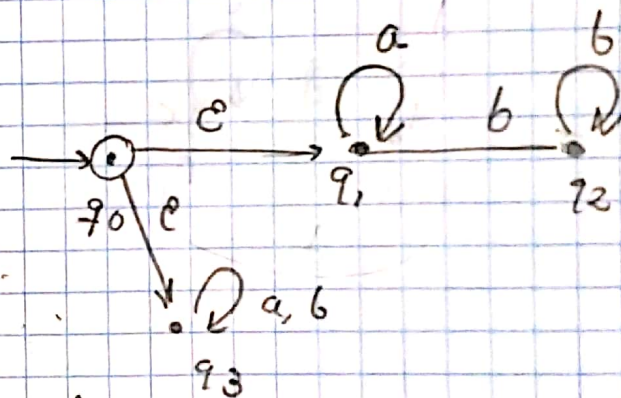 a
b
ε
b
q₁
q₂
q₀
ε
a, b
q₃